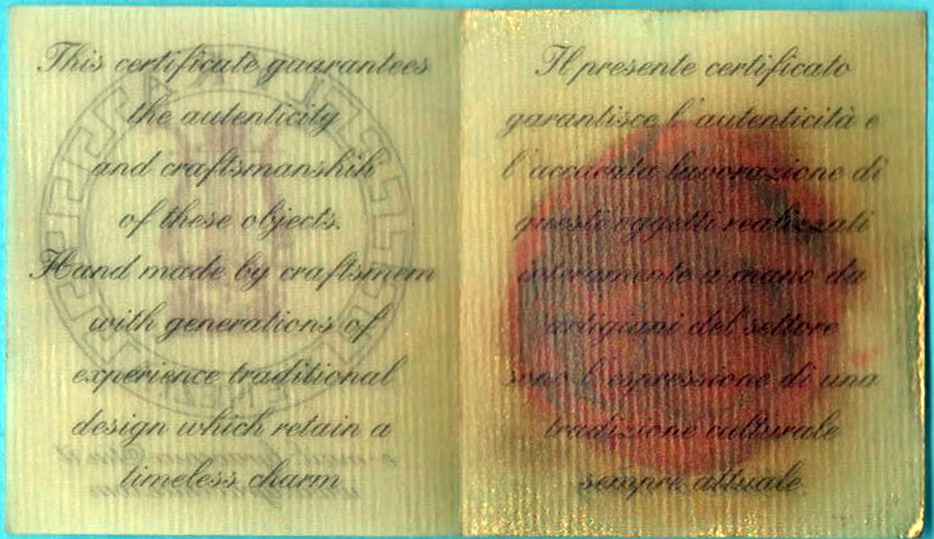 This certificate guarantees
the autenticity
and craftsmanshih
of these objects.
Hand made by craftsmem
with generations of
experience traditional
design which retain a
timeless charm
Il presente certificato
garantisce l' autenticità e
l' accurata lavorazione di
questi oggetti realizzati
interamente a mano da
artigiani del settore
sono l' espressione di una
tradizione culturale
sempre attuale